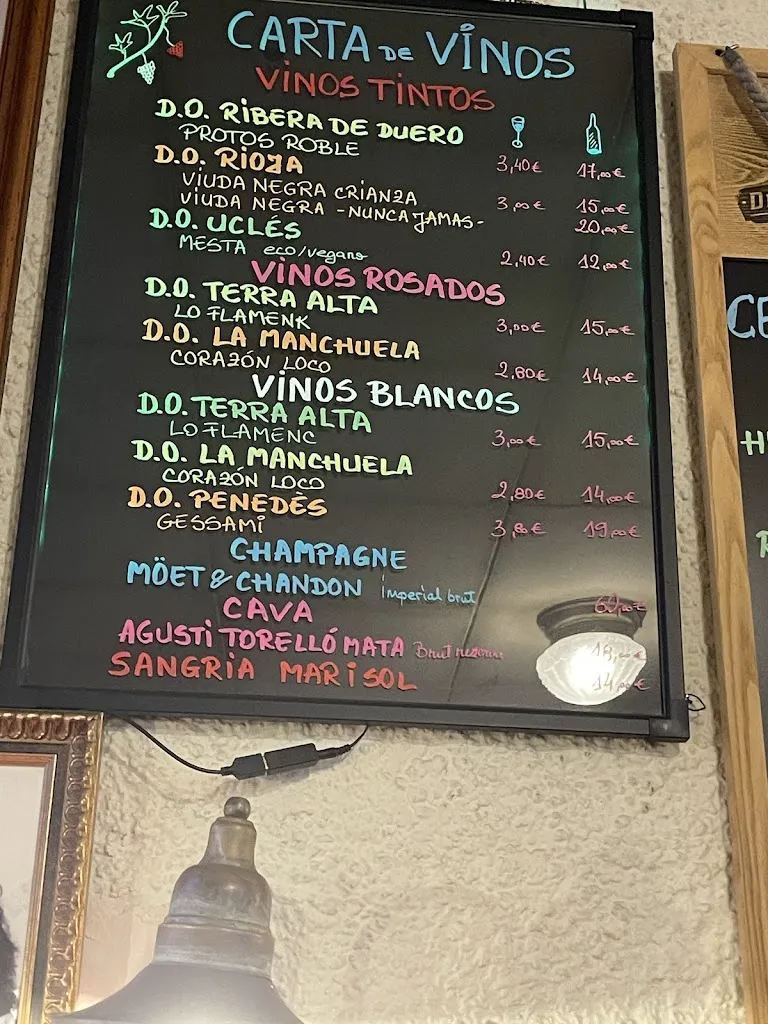 CARTA DE VINOS
VINOS TINTOS
D.O. RIBERA DE DUERO
PROTOS ROBLE 3,40€ 17,00€
D.O. RIOJA
VIUDA NEGRA CRIANZA 3,00€ 15,00€
VIUDA NEGRA -NUNCA JAMAS- 20,00€
D.O. UCLÉS
MESTA eco/vegano 2,40€ 12,00€
VINOS ROSADOS
D.O. TERRA ALTA
LO FLAMENK 3,00€ 15,00€
D.O. LA MANCHUELA
CORAZÓN LOCO 2,80€ 14,00€
VINOS BLANCOS
D.O. TERRA ALTA
LO FLAMENC 3,00€ 15,00€
D.O. LA MANCHUELA
CORAZÓN LOCO 2,80€ 14,00€
D.O. PENEDÈS
GESSAMÍ 3,80€ 19,00€
CHAMPAGNE
MÖET & CHANDON Imperial brut 60,00€
CAVA
AGUSTI TORELLÓ MATA Brut 18,00€
SANGRIA MARISOL 14,00€